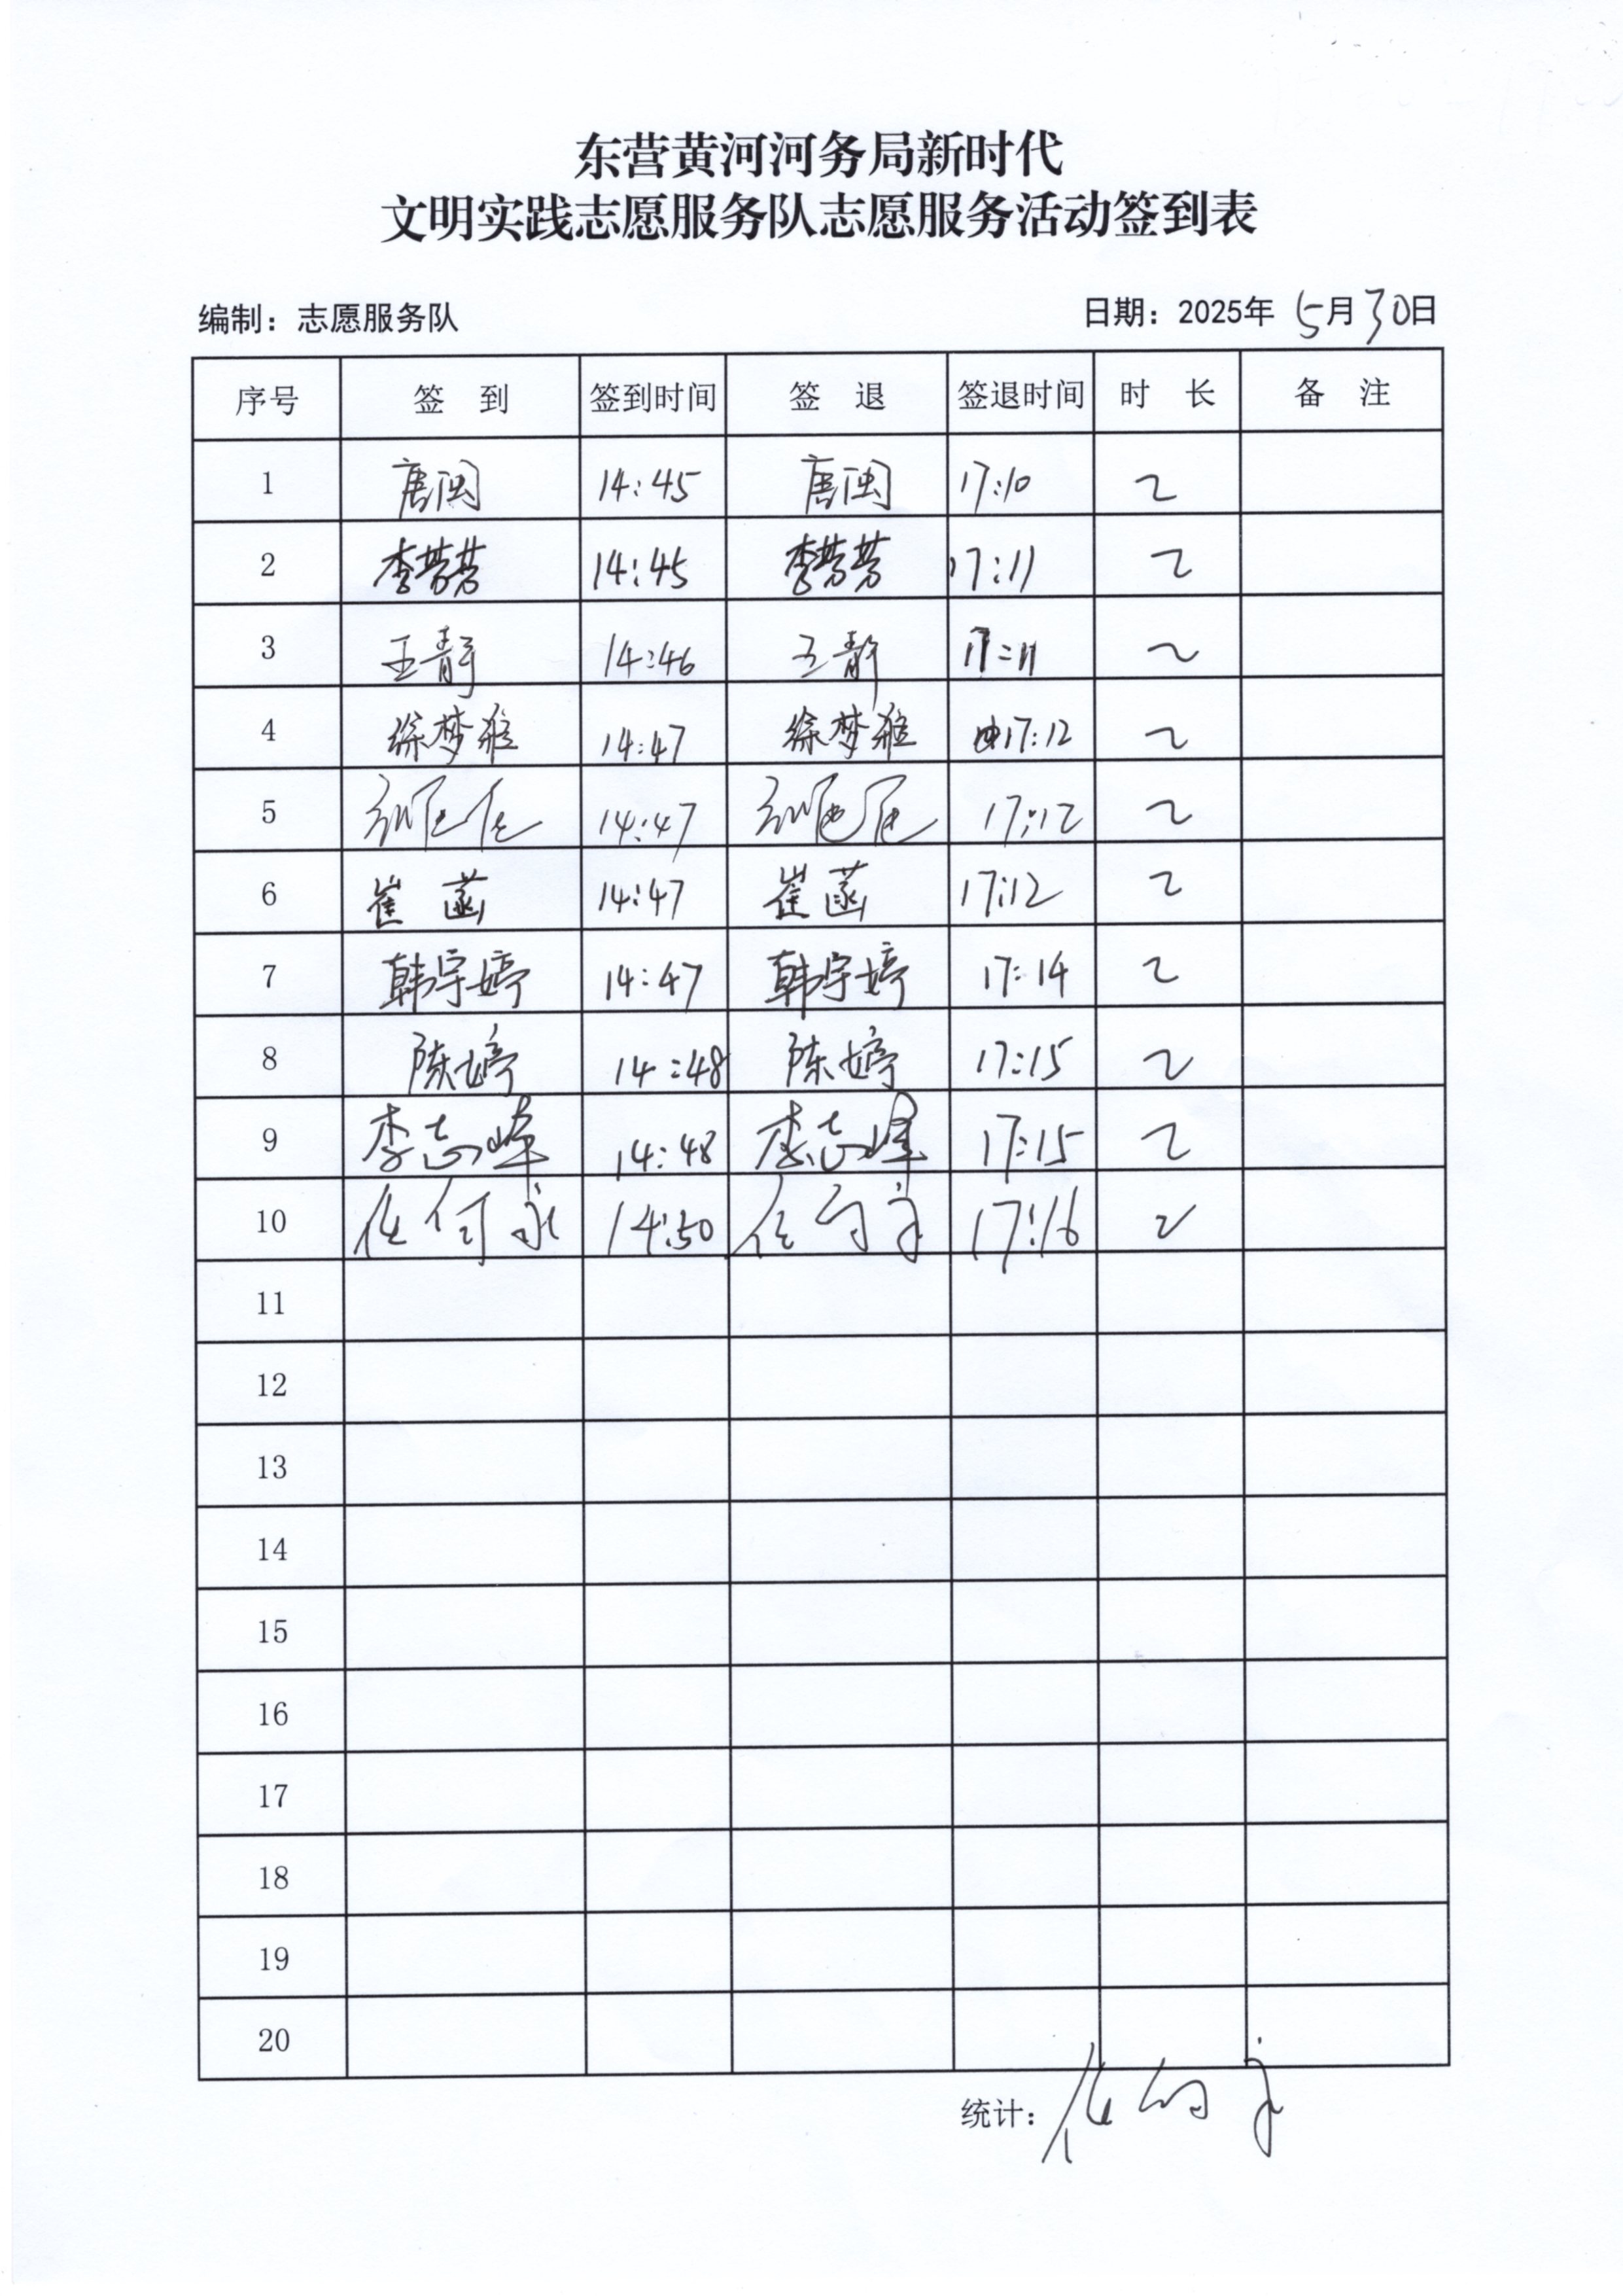 东营黄河河务局新时代
文明实践志愿服务队志愿服务活动签到表
编制：志愿服务队 日期：2025年 5月30日
序号 签 到 签到时间 签 退 签退时间 时 长 备 注
1 唐闽 14:45 唐闽 17:10 2
2 李芳芳 14:45 李芳芳 17:11 2
3 王静 14:46 王静 17:11 2
4 徐梦雅 14:47 徐梦雅 17:12 2
5 14:47 17:12 2
6 崔菡 14:47 崔菡 17:12 2
7 韩宇婷 14:47 韩宇婷 17:14 2
8 陈婷 14:48 陈婷 17:15 2
9 李志峰 14:48 李志峰 17:15 2
10 14:50 17:16 2
11
12
13
14
15
16
17
18
19
20
统计：